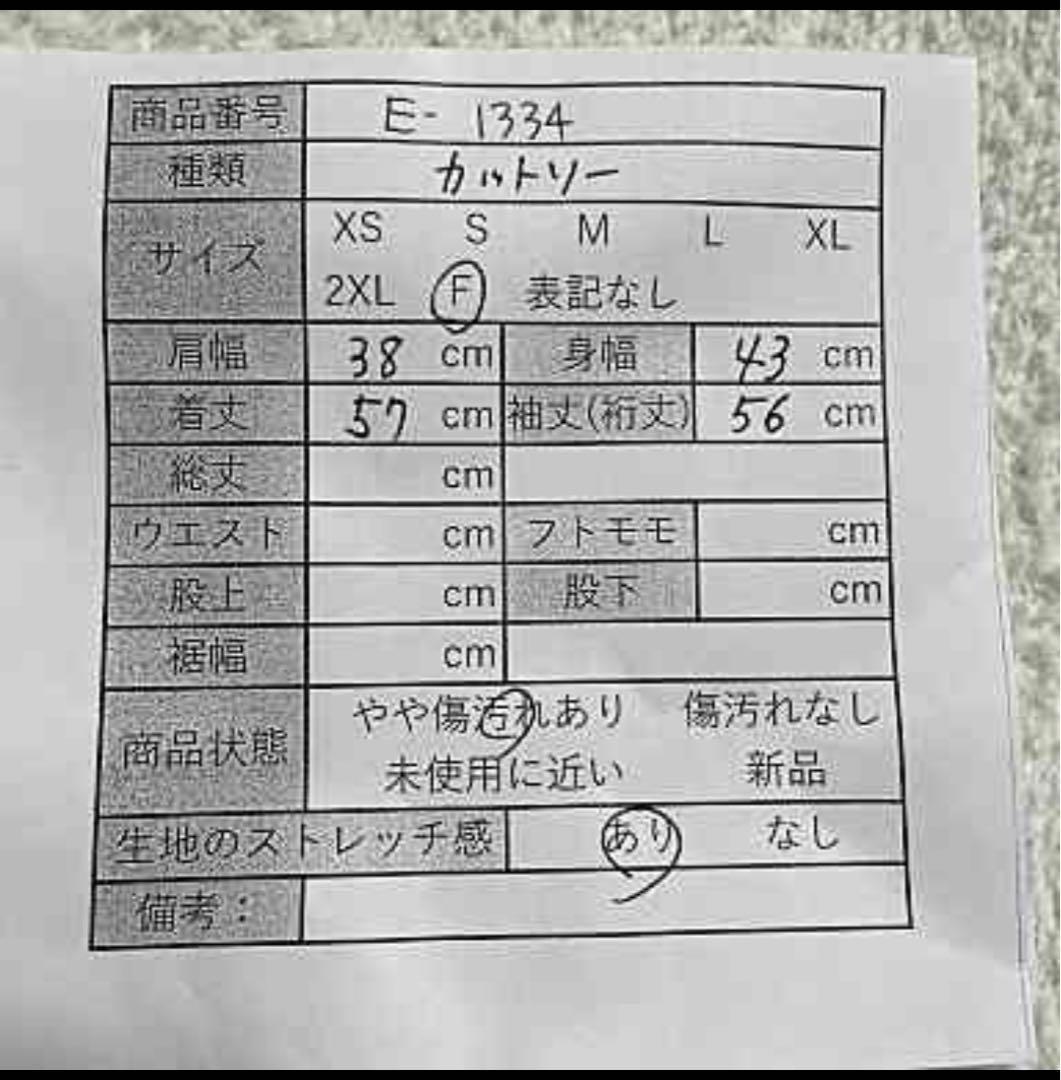 商品番号 E- 1334
種類 カットソー
サイズ XS S M L XL
2XL F 表記なし
肩幅 38 cm 身幅 43 cm
着丈 57 cm 袖丈(裄丈) 56 cm
総丈 cm
ウエスト cm フトモモ cm
股上 cm 股下 cm
裾幅 cm
商品状態 やや傷汚れあり 傷汚れなし
未使用に近い 新品
生地のストレッチ感 あり なし
備考：